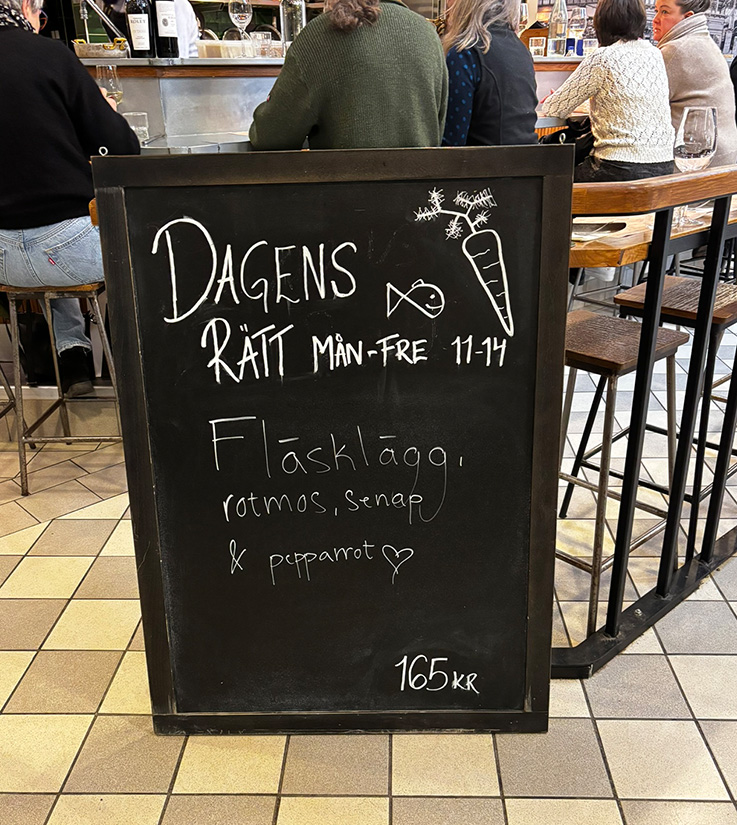 DAGENS
RÄTT MÅN-FRE 11-14
Fläsklägg,
rotmos, senap
& pepparrot ♡
165 KR